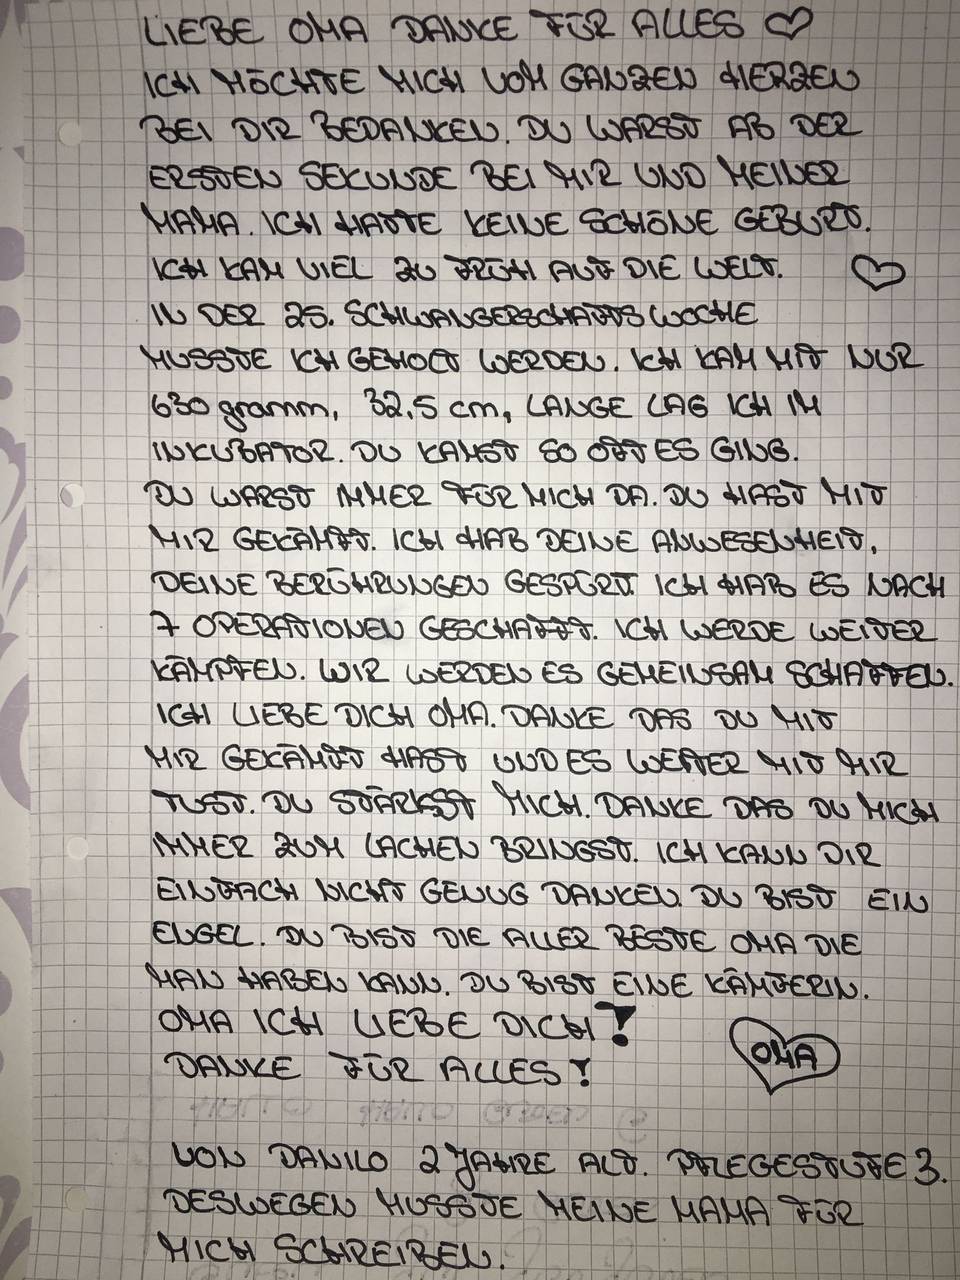 LIEBE OMA DANKE FÜR ALLES ♡
ICH MÖCHTE MICH VOM GANZEN HERZEN
BEI DIR BEDANKEN. DU WARST AB DER
ERSTEN SEKUNDE BEI MIR UND MEINER
MAMA. ICH HATTE KEINE SCHÖNE GEBURT.
ICH KAM VIEL ZU FRÜH AUF DIE WELT. ♡
IN DER 25. SCHWANGERSCHAFTSWOCHE
MUSSTE ICH GEHOLT WERDEN. ICH KAM MIT NUR
630 gramm, 32,5 cm, LANGE LAG ICH IM
INKUBATOR. DU KAMST SO OFT ES GING.
DU WARST IMMER FÜR MICH DA. DU HAST MIT
MIR GEKÄMFT. ICH HAB DEINE ANWESENHEIT,
DEINE BERÜHRUNGEN GESPÜRT. ICH HAB ES NACH
7 OPERATIONEN GESCHAFFT. ICH WERDE WEITER
KÄMPFEN. WIR WERDEN ES GEMEINSAM SCHAFFEN.
ICH LIEBE DICH OMA. DANKE DAS DU MIT
MIR GEKÄMFT HAST UND ES WEITER MIT MIR
TUST. DU STÄRKST MICH. DANKE DAS DU MICH
IMMER ZUM LACHEN BRINGST. ICH KANN DIR
EINFACH NICHT GENUG DANKEN. DU BIST EIN
ENGEL. DU BIST DIE ALLER BESTE OMA DIE
MAN HABEN KANN. DU BIST EINE KÄMFERIN.
OMA ICH LIEBE DICH!
DANKE FÜR ALLES!
OMA
VON DANILO 2 JAHRE ALT. PFLEGESTUFE 3.
DESWEGEN MUSSTE MEINE MAMA FÜR
MICH SCHREIBEN.